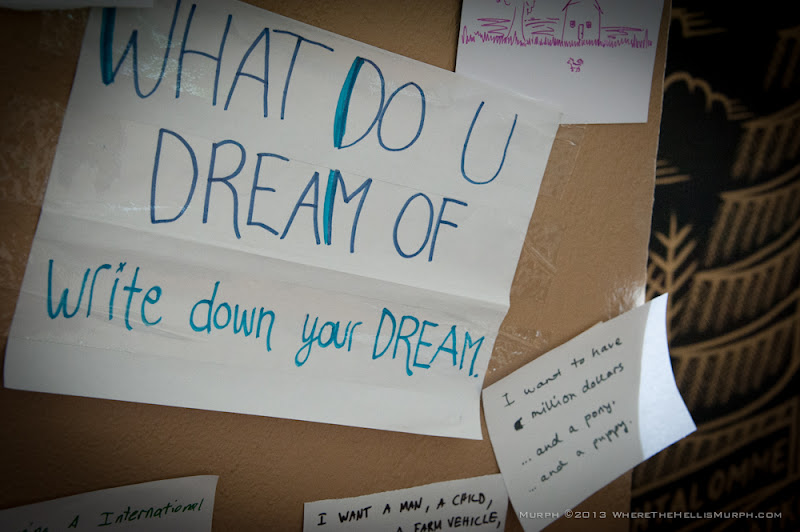 WHAT DO U
DREAM OF
write down your DREAM.
I want to have
million dollars
... and a pony.
... and a puppy.
A International
I WANT A MAN, A CHILD,
A FARM VEHICLE,
MURPH ©2013 WHERETHEHELLISMURPH.COM